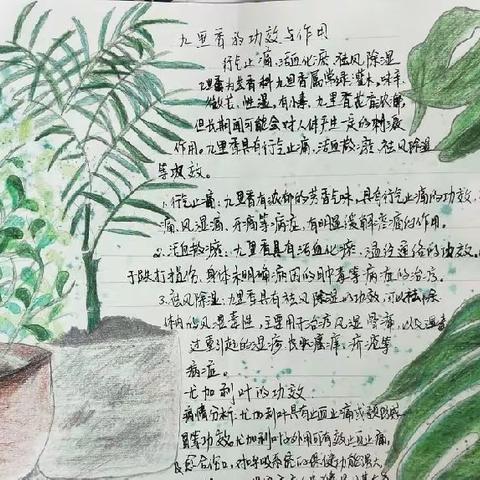 九里香的功效与作用
行气止痛,活血化瘀,祛风除湿
九里香为芸香科九里香属常绿灌木,味辛、
微苦、性温,有小毒,九里香花有浓香,
但长期闻可能会对人体产生一定的刺激
作用。九里香具有行气止痛,活血散瘀,祛风除湿
等功效。
1.行气止痛:九里香有浓郁的芳香气味,具有行气止痛的功效,
痛,风湿痛,牙痛等病症,有明显缓解疼痛的作用。
2.活血散瘀:九里香具有活血化瘀、温经通络的功效。
于跌打损伤、身体未明确病因的肿毒等病症的治疗。
3.祛风除湿:九里香具有祛风除湿的功效,可以祛除
体内的风湿毒性,主要用于治疗风湿骨痛,以及湿毒
过重引起的湿疹 疥疮等
病症。
尤加利叶的功效
病情分析:尤加利叶具有止血止痛
等功效,尤加利叶外用可有效止血止痛,
愈合伤口,对呼吸系统的保健功能强大,